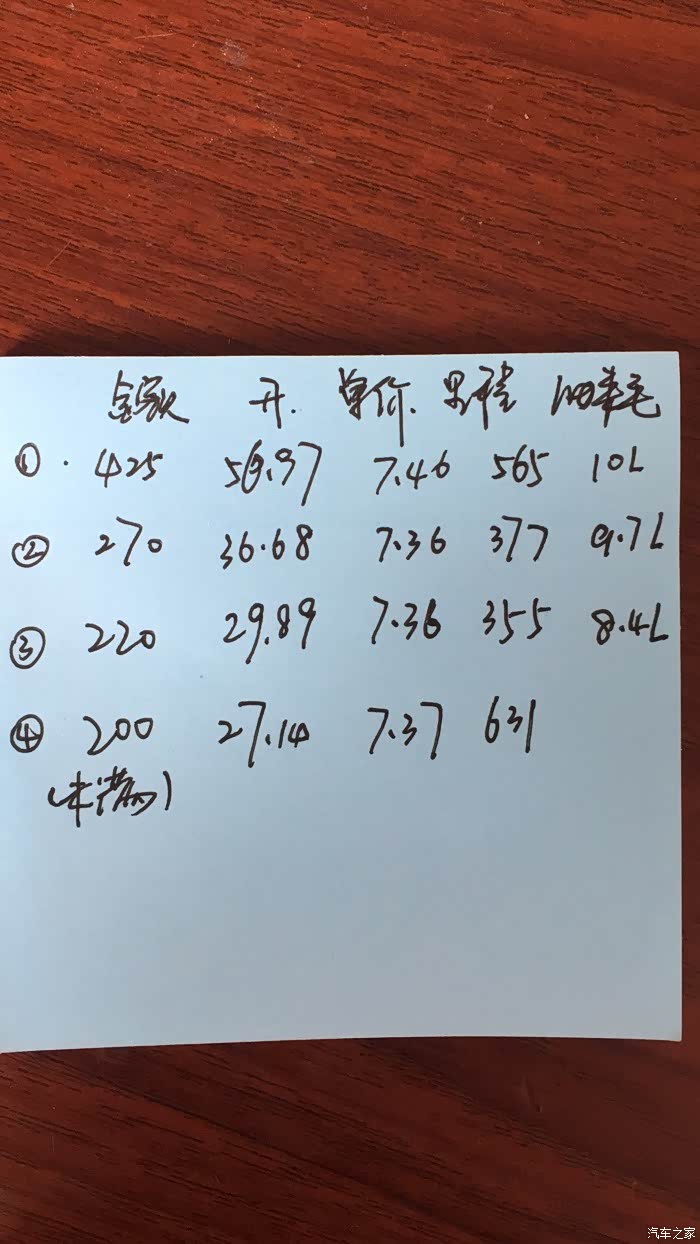 金额 升. 单价. 里程 油耗
① · 425 56.97 7.46 565 10L
② 270 36.68 7.36 377 9.7L
③ 220 29.89 7.36 355 8.4L
④ 200 27.14 7.37 631
(未满)
汽车之家